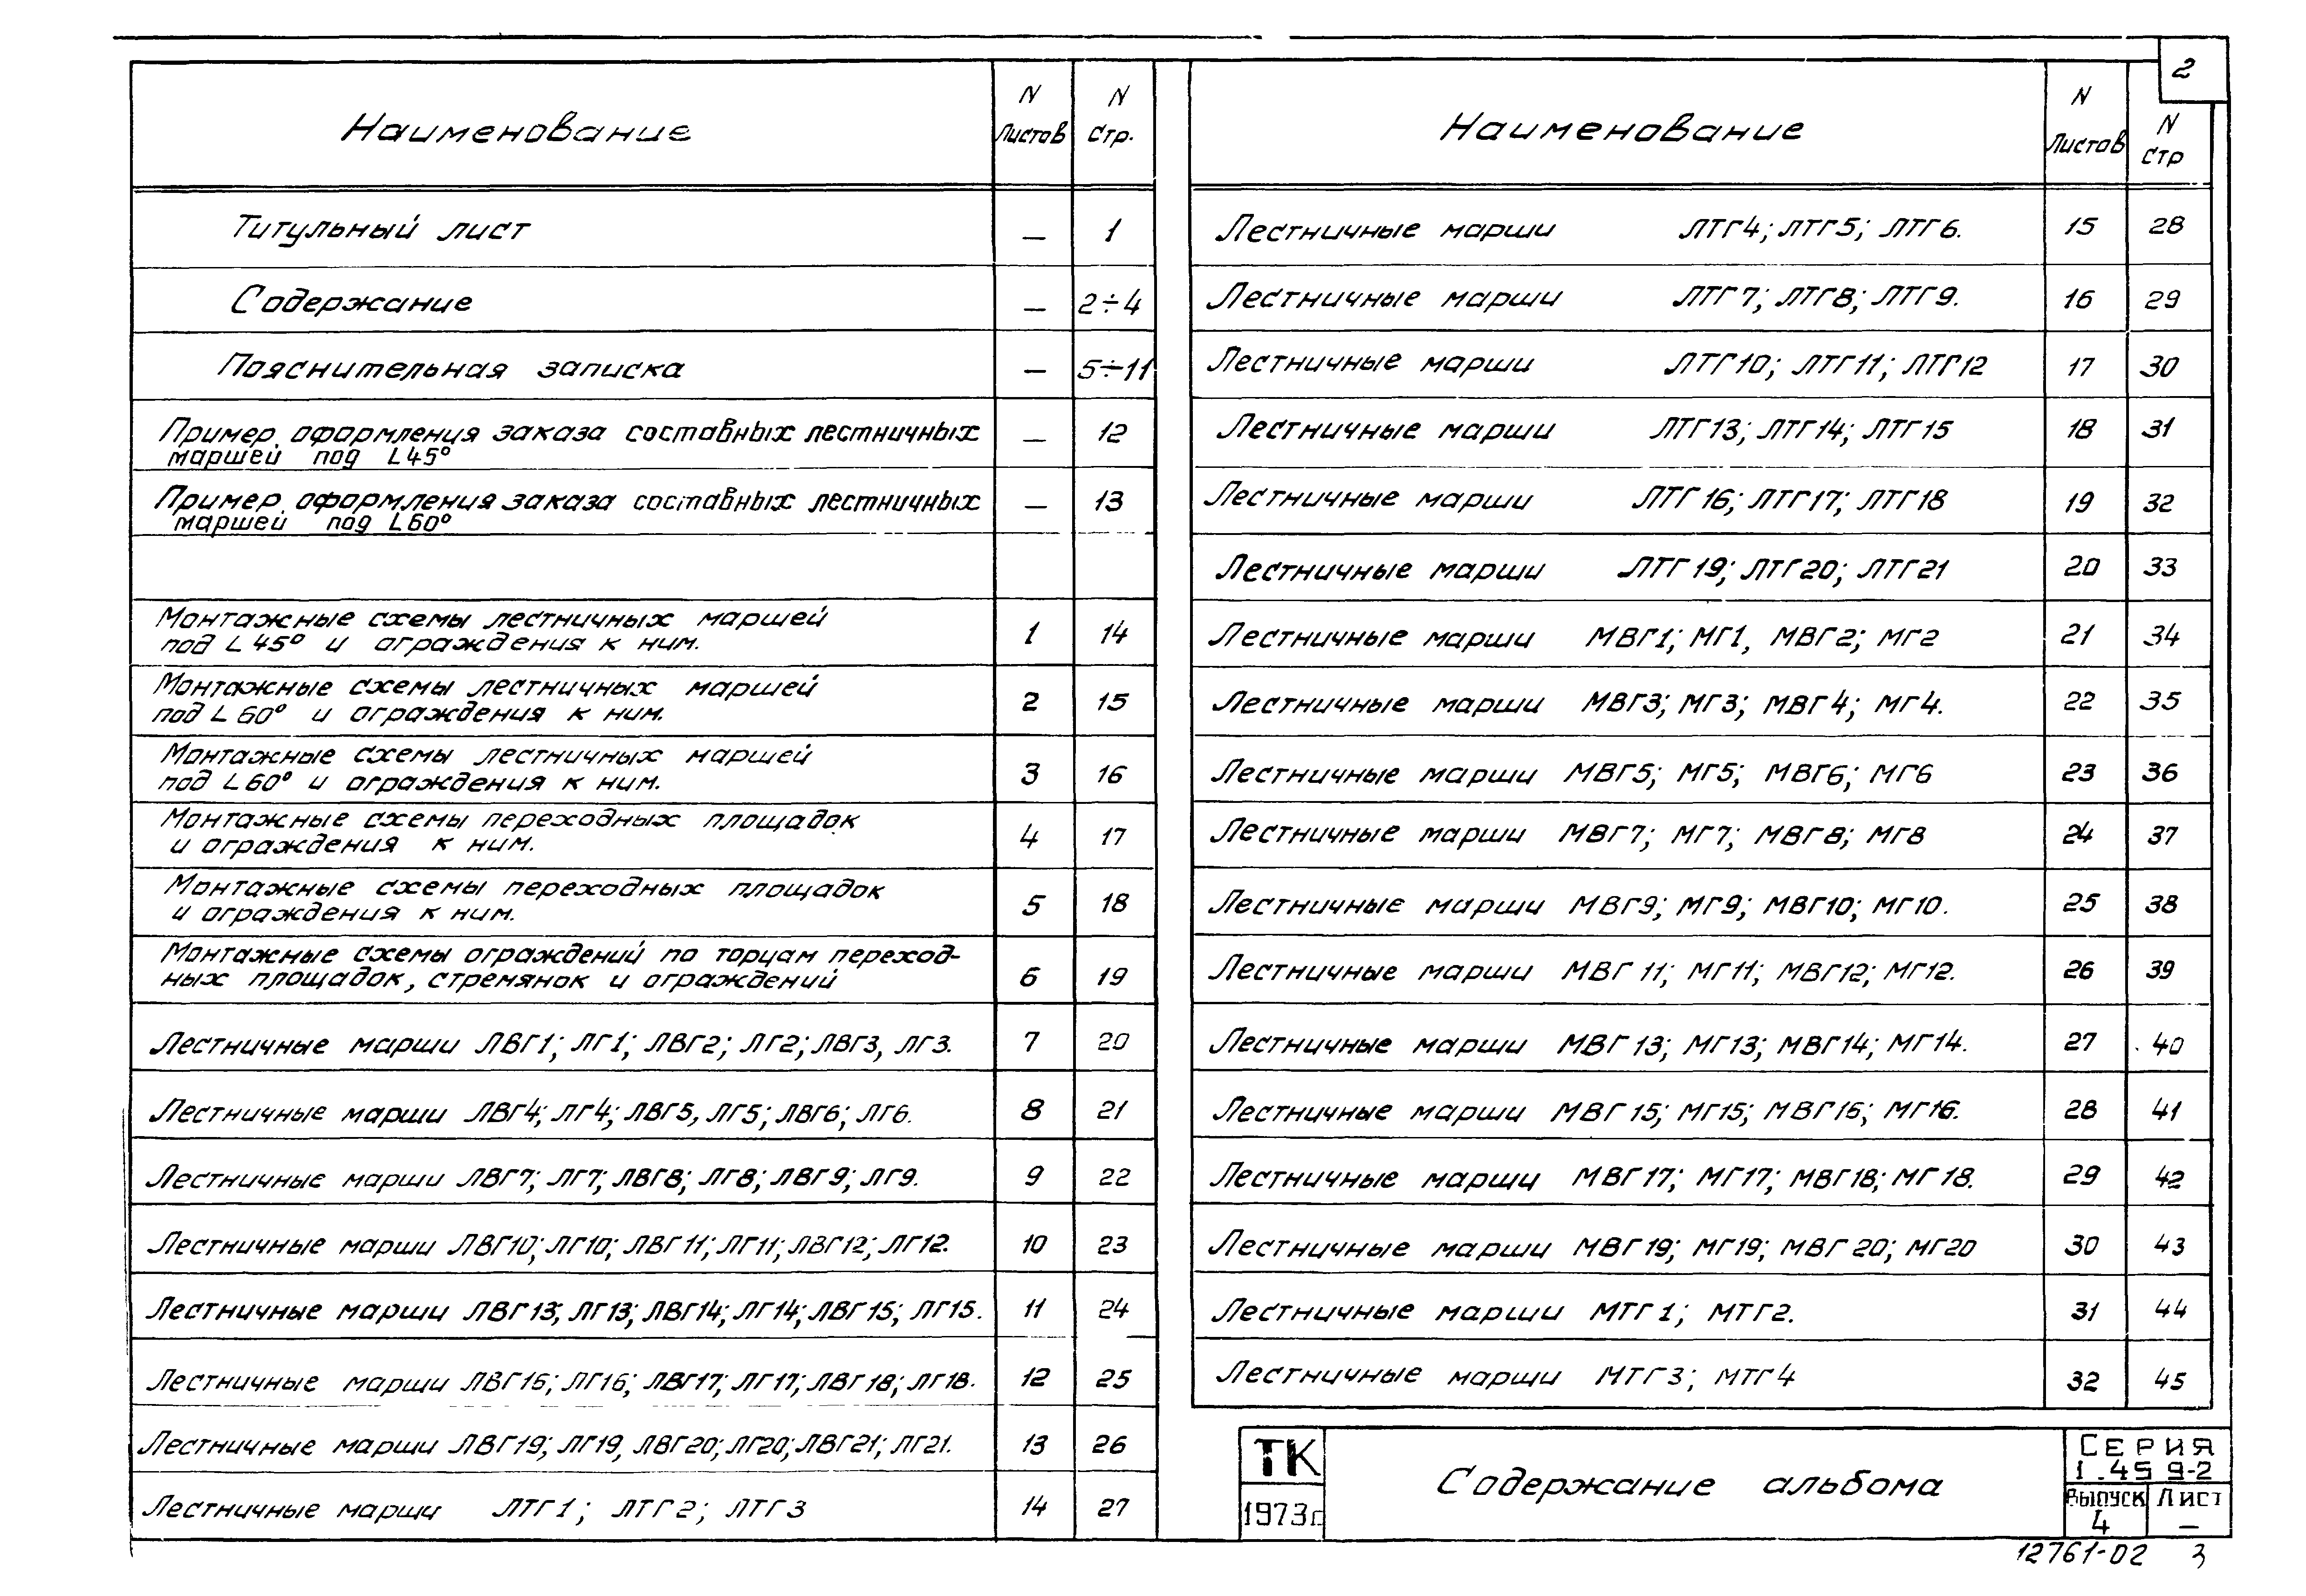 2
Наименование N Листов N Стр.
Титульный лист — 1
Содержание — 2÷4
Пояснительная записка — 5÷11
Пример оформления заказа составных лестничных
маршей под L45° — 12
Пример оформления заказа составных лестничных
маршей под L60° — 13
Монтажные схемы лестничных маршей
под L 45° и ограждения к ним. 1 14
Монтажные схемы лестничных маршей
под L 60° и ограждения к ним. 2 15
Монтажные схемы лестничных маршей
под L 60° и ограждения к ним. 3 16
Монтажные схемы переходных площадок
и ограждения к ним. 4 17
Монтажные схемы переходных площадок
и ограждения к ним. 5 18
Монтажные схемы ограждений по торцам переход-
ных площадок, стремянок и ограждений 6 19
Лестничные марши ЛВГ1; ЛГ1; ЛВГ2; ЛГ2; ЛВГ3, ЛГ3. 7 20
Лестничные марши ЛВГ4; ЛГ4; ЛВГ5, ЛГ5; ЛВГ6; ЛГ6. 8 21
Лестничные марши ЛВГ7; ЛГ7; ЛВГ8; ЛГ8; ЛВГ9; ЛГ9. 9 22
Лестничные марши ЛВГ10; ЛГ10; ЛВГ11; ЛГ11; ЛВГ12; ЛГ12. 10 23
Лестничные марши ЛВГ13; ЛГ13; ЛВГ14; ЛГ14; ЛВГ15; ЛГ15. 11 24
Лестничные марши ЛВГ16; ЛГ16; ЛВГ17; ЛГ17; ЛВГ18; ЛГ18. 12 25
Лестничные марши ЛВГ19; ЛГ19, ЛВГ20; ЛГ20; ЛВГ21; ЛГ21. 13 26
Лестничные марши ЛТГ1; ЛТГ2; ЛТГ3 14 27
Наименование N Листов N Стр
Лестничные марши ЛТГ4; ЛТГ5; ЛТГ6. 15 28
Лестничные марши ЛТГ7; ЛТГ8; ЛТГ9. 16 29
Лестничные марши ЛТГ10; ЛТГ11; ЛТГ12 17 30
Лестничные марши ЛТГ13; ЛТГ14; ЛТГ15 18 31
Лестничные марши ЛТГ16; ЛТГ17; ЛТГ18 19 32
Лестничные марши ЛТГ19; ЛТГ20; ЛТГ21 20 33
Лестничные марши МВГ1; МГ1, МВГ2; МГ2 21 34
Лестничные марши МВГ3; МГ3; МВГ4; МГ4. 22 35
Лестничные марши МВГ5; МГ5; МВГ6; МГ6 23 36
Лестничные марши МВГ7; МГ7; МВГ8; МГ8 24 37
Лестничные марши МВГ9; МГ9; МВГ10; МГ10. 25 38
Лестничные марши МВГ11; МГ11; МВГ12; МГ12. 26 39
Лестничные марши МВГ13; МГ13; МВГ14; МГ14. 27 40
Лестничные марши МВГ15; МГ15; МВГ16; МГ16. 28 41
Лестничные марши МВГ17; МГ17; МВГ18; МГ18. 29 42
Лестничные марши МВГ19; МГ19; МВГ20; МГ20 30 43
Лестничные марши МТГ1; МТГ2. 31 44
Лестничные марши МТГ3; МТГ4 32 45
ТК
1973г
Содержание альбома
Серия
1.459-2
Выпуск Лист
4 —
12761-02 3